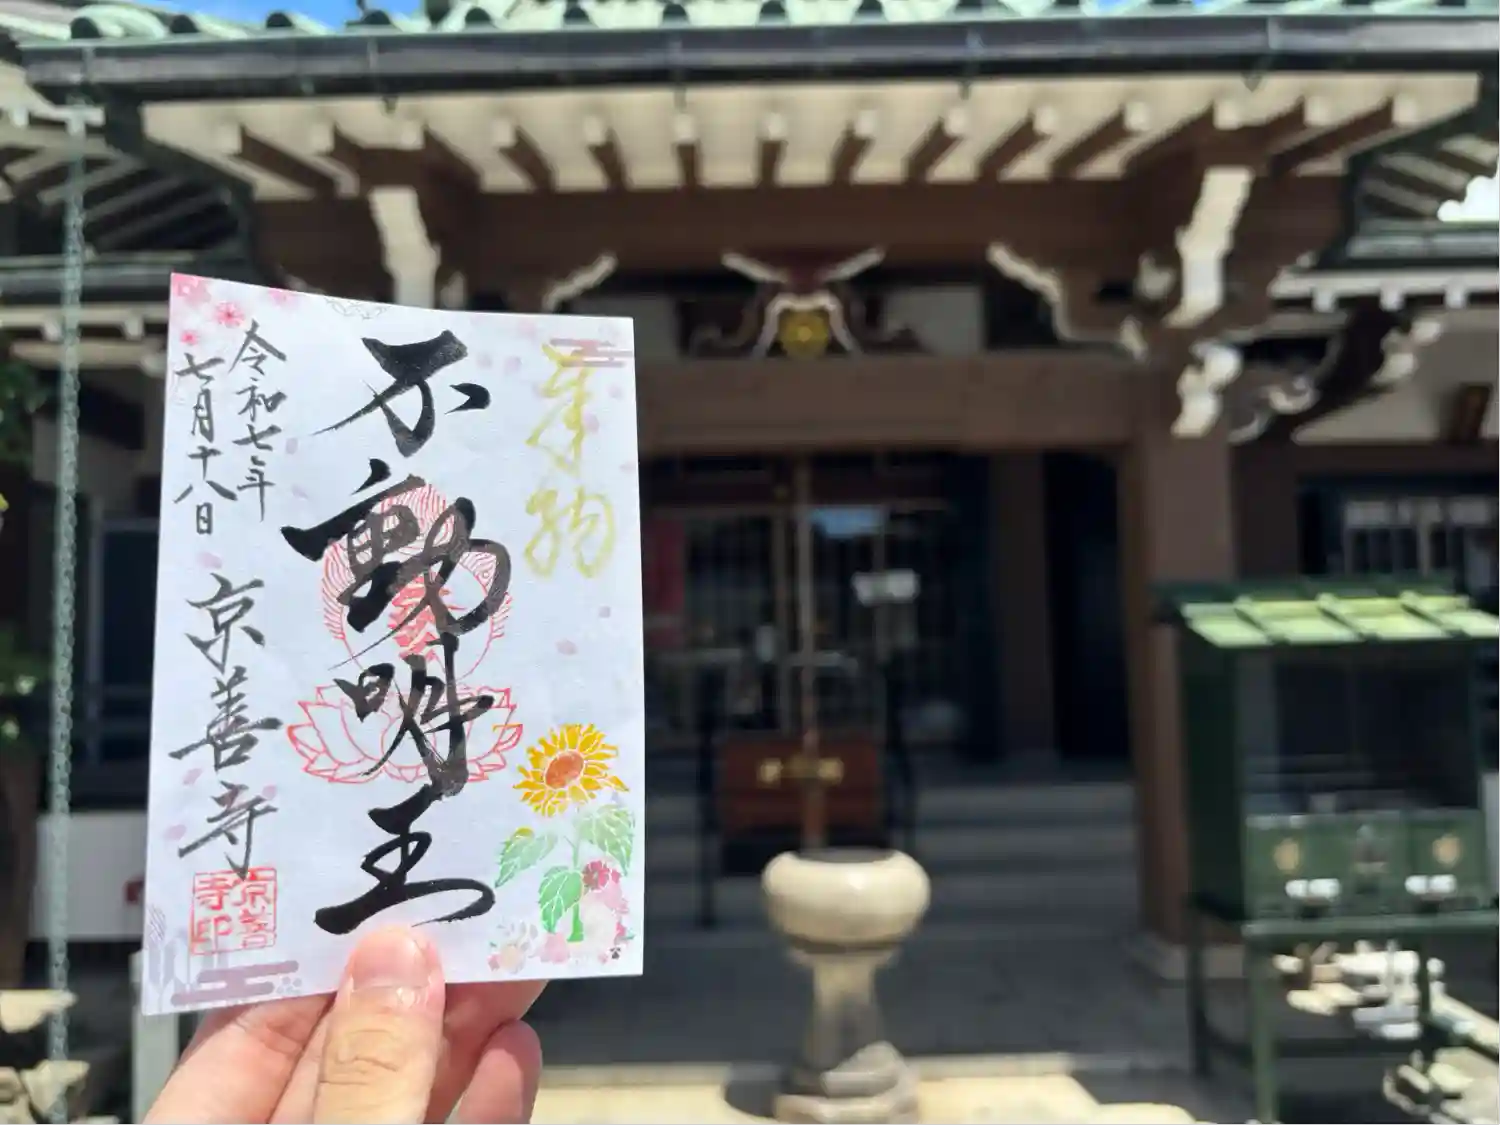 奉拝
不動明王
令和七年
七月十八日
京善寺
京善
寺印